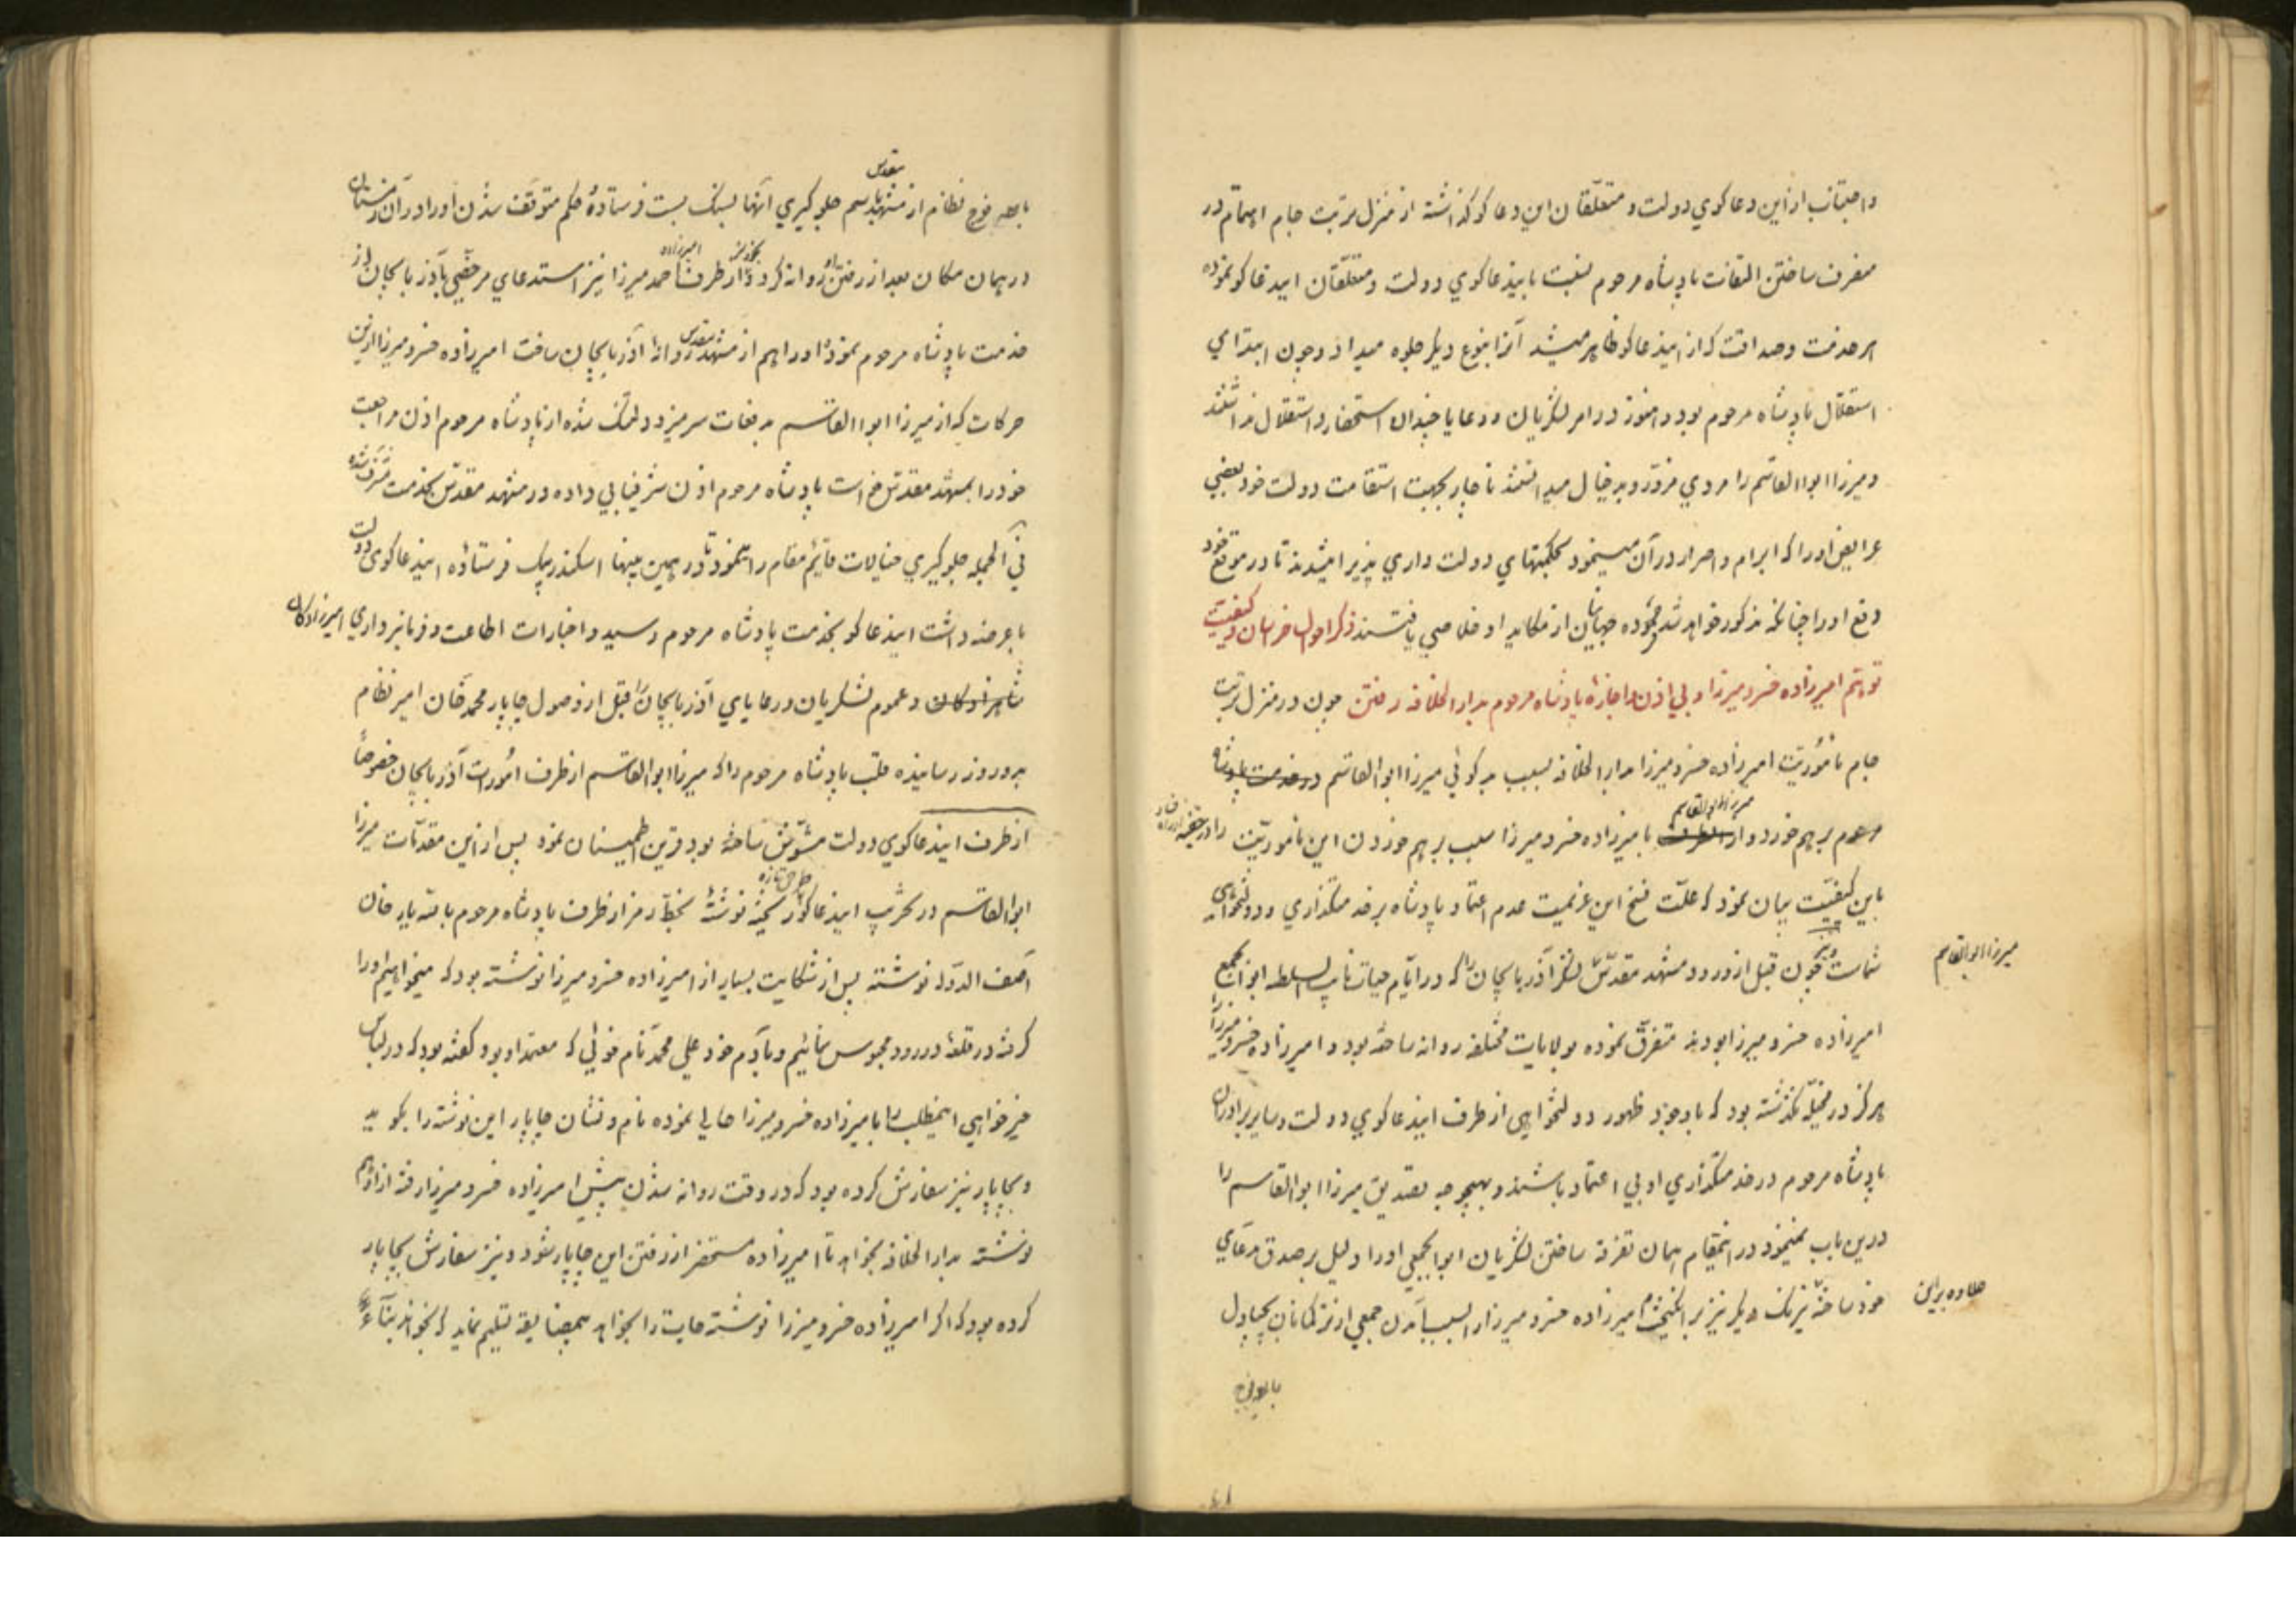 و اجتناب ازین دعاکوي دولت و متعلّقان این دعاکو کذاشته از منزل تربت جام اهتمام در
مصرف ساختن التفات پادشاه مرحوم نسبت باینذعاکوي دولت و متعلّقان اینذعاکو نموده
هر خدمت و صداقت که از اینذعاکو ظاهر میشد آنرا بنوع دیکر جلوه میداد و چون ابتداي
استقلال پادشاه مرحوم بود و هنوز در امر لشکریان و رعایا چندان استحضار و استقلال نداشتند
و میرزا ابوالقاسم را مردي مزوّر و بد خیال میدانستند ناچار بجهت استقامت دولت خود بعضي
عرایض اورا که ابرام و اصرار در آن مینمود بحکمتهاي دولت داري پذیرا میشدند تا در موقع خود
دفع اورا چنانکه مذکور خواهد شد نموده جهانیان از مکاید او خلاصي یافتند ذکر احوال خراسان و کیفیت
توهّم امیرزاده خسرو میرزا و بي اذن و اجازه پادشاه مرحوم بدارالخلافه رفتن چون در منزل تربت
جام مأموریّت امیرزاده خسرو میرزا بدارالخلافه بسبب بدکوئي میرزا ابوالقاسم در خدمت پادشاه
مرحوم برهم خورد و میرزا ابوالقاسم با میرزاده خسرو میرزا سبب برهم خوردن این مأموریّت را در
باین کیفیّت بیان نمود که علّت فسخ این عزیمت عدم اعتماد پادشاه بر خدمتکذاري و دولتخواهي
شماست و نیز چون قبل از ورود مشهد مقدّس لشکر آذربایجان را که در ایّام حیات نایب السلطنه ابوابجمع
میرزا ابوالقاسم
امیرزاده خسرو میرزا بودند متفرّق نموده بولایات مختلفه روانه ساخته بود و امیرزاده خسرو میرزا
هرکز در مخیّله نکذشته بود که با وجود ظهور دولتخواهی از طرف اینذعاکوي دولت و سایر برادران
پادشاه مرحوم در خدمتکذاري او بي اعتماد باشند و بهیچوجه تصدیق میرزا ابوالقاسم را
درین باب نمینمود در اینمقام همان تفرقه ساختن لشکریان ابوابجمعي اورا دلیل بر صدق مدعاي
خود ساخته نیرنک دیکر نیز برانکیخت امیرزاده خسرو میرزا را بسبب آمدن جمعي از ترکمانان بچپاول
علاوه براین
بابعوفوج
با بعضي فوج نظام از مشهد مقدس باسم جلوکیري آنها بسنک بست فرستاده حکم متوقف شدن اورا در آن زمستان
در همان مکان بعد از رفتن او روانه کرد و از طرف امیرزاده احمد میرزا نیز استدعاي مرخصي بآذربایجان از
خدمت پادشاه مرحوم نموده اورا هم از مشهد مقدس روانه آذربایجان ساخت امیرزاده خسرو میرزا ازین
حرکات که از میرزا ابوالقاسم بدفعات سرمیزد دلتنک شده از پادشاه مرحوم اذن مراجعت
خودرا بمشهد مقدّس خواست پادشاه مرحوم اذن شرفیابي داده در مشهد مقدّس بخدمت مشرف شده
في الجمله جلوکیري خیالات قایم مقام را نمود تا در همین بینها اسکندر بیک فرستاده اینذعاکوي دولت
با عرضه داشت اینذعاکو بخدمت پادشاه مرحوم رسید و اخبارات اطاعت و فرمانبرداري امیرزادکان
شاهزادکان و عموم لشکریان و رعایاي آذربایجان را قبل از وصول چاپار محمد خان امیر نظام
بدو روز رسانیده قلب پادشاه مرحوم را که میرزا ابوالقاسم از طرف امورات آذربایجان خصوصاً
از طرف اینذعاکوي دولت مشوّش ساخته بود قرین اطمینان نمود پس ازین مقدّمات میرزا
ابوالقاسم در تخریب اینذعاکو طرح تازه ریخته نوشته بخطّ رمز از طرف پادشاه مرحوم بالله یار خان
آصف الدّوله نوشته پس از شکایت بسیار از امیرزاده خسرو میرزا نوشته بود که میخواهیم اورا
کرفته در قلعه درود محبوس نمائیم و بآدم خود علي محمد نام خوئي که معتمد او بود کفته بود که در لباس
خیرخواهي اینمطلب را بامیرزاده خسرو میرزا حالي نموده نام و نشان چاپار این نوشته را بکوید
و بچاپار نیز سفارش کرده بود که در وقت روانه شدن پیش امیرزاده خسرو میرزا رفته ازاو هم
نوشته بدارالخلافه بخواهد تا امیرزاده مستحضر از رفتن این چاپار شود و نیز سفارش بچاپار
کرده بود که اکر امیرزاده خسرو میرزا نوشته جات را بخواهد بمضایقه تسلیم نماید که بخواند بناءً